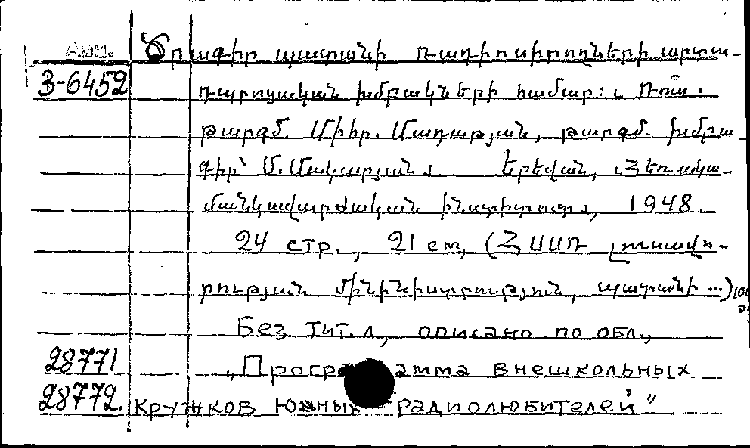 Амп. Ծրագիր պատանի ռադիոսիրողների արտա-
3-6452 դպրոցական խմբակների համար: Ռուս.
թարգմ. Միհր. Մադաթյան, թարգմ. խմբա
գիր՝ Մ. Մակարյան. Երեվան, Հեռակա
մանկավարժական ինստիտուտ, 1948.
24 стр., 21 см, (ՀՍՍՌ լուսավո-
րության մինիստրություն, պատանի ...) 100
Без тит. л, описано по обл,
28771 „Программа внешкольных
28772. кружков Южных радиолюбителей"